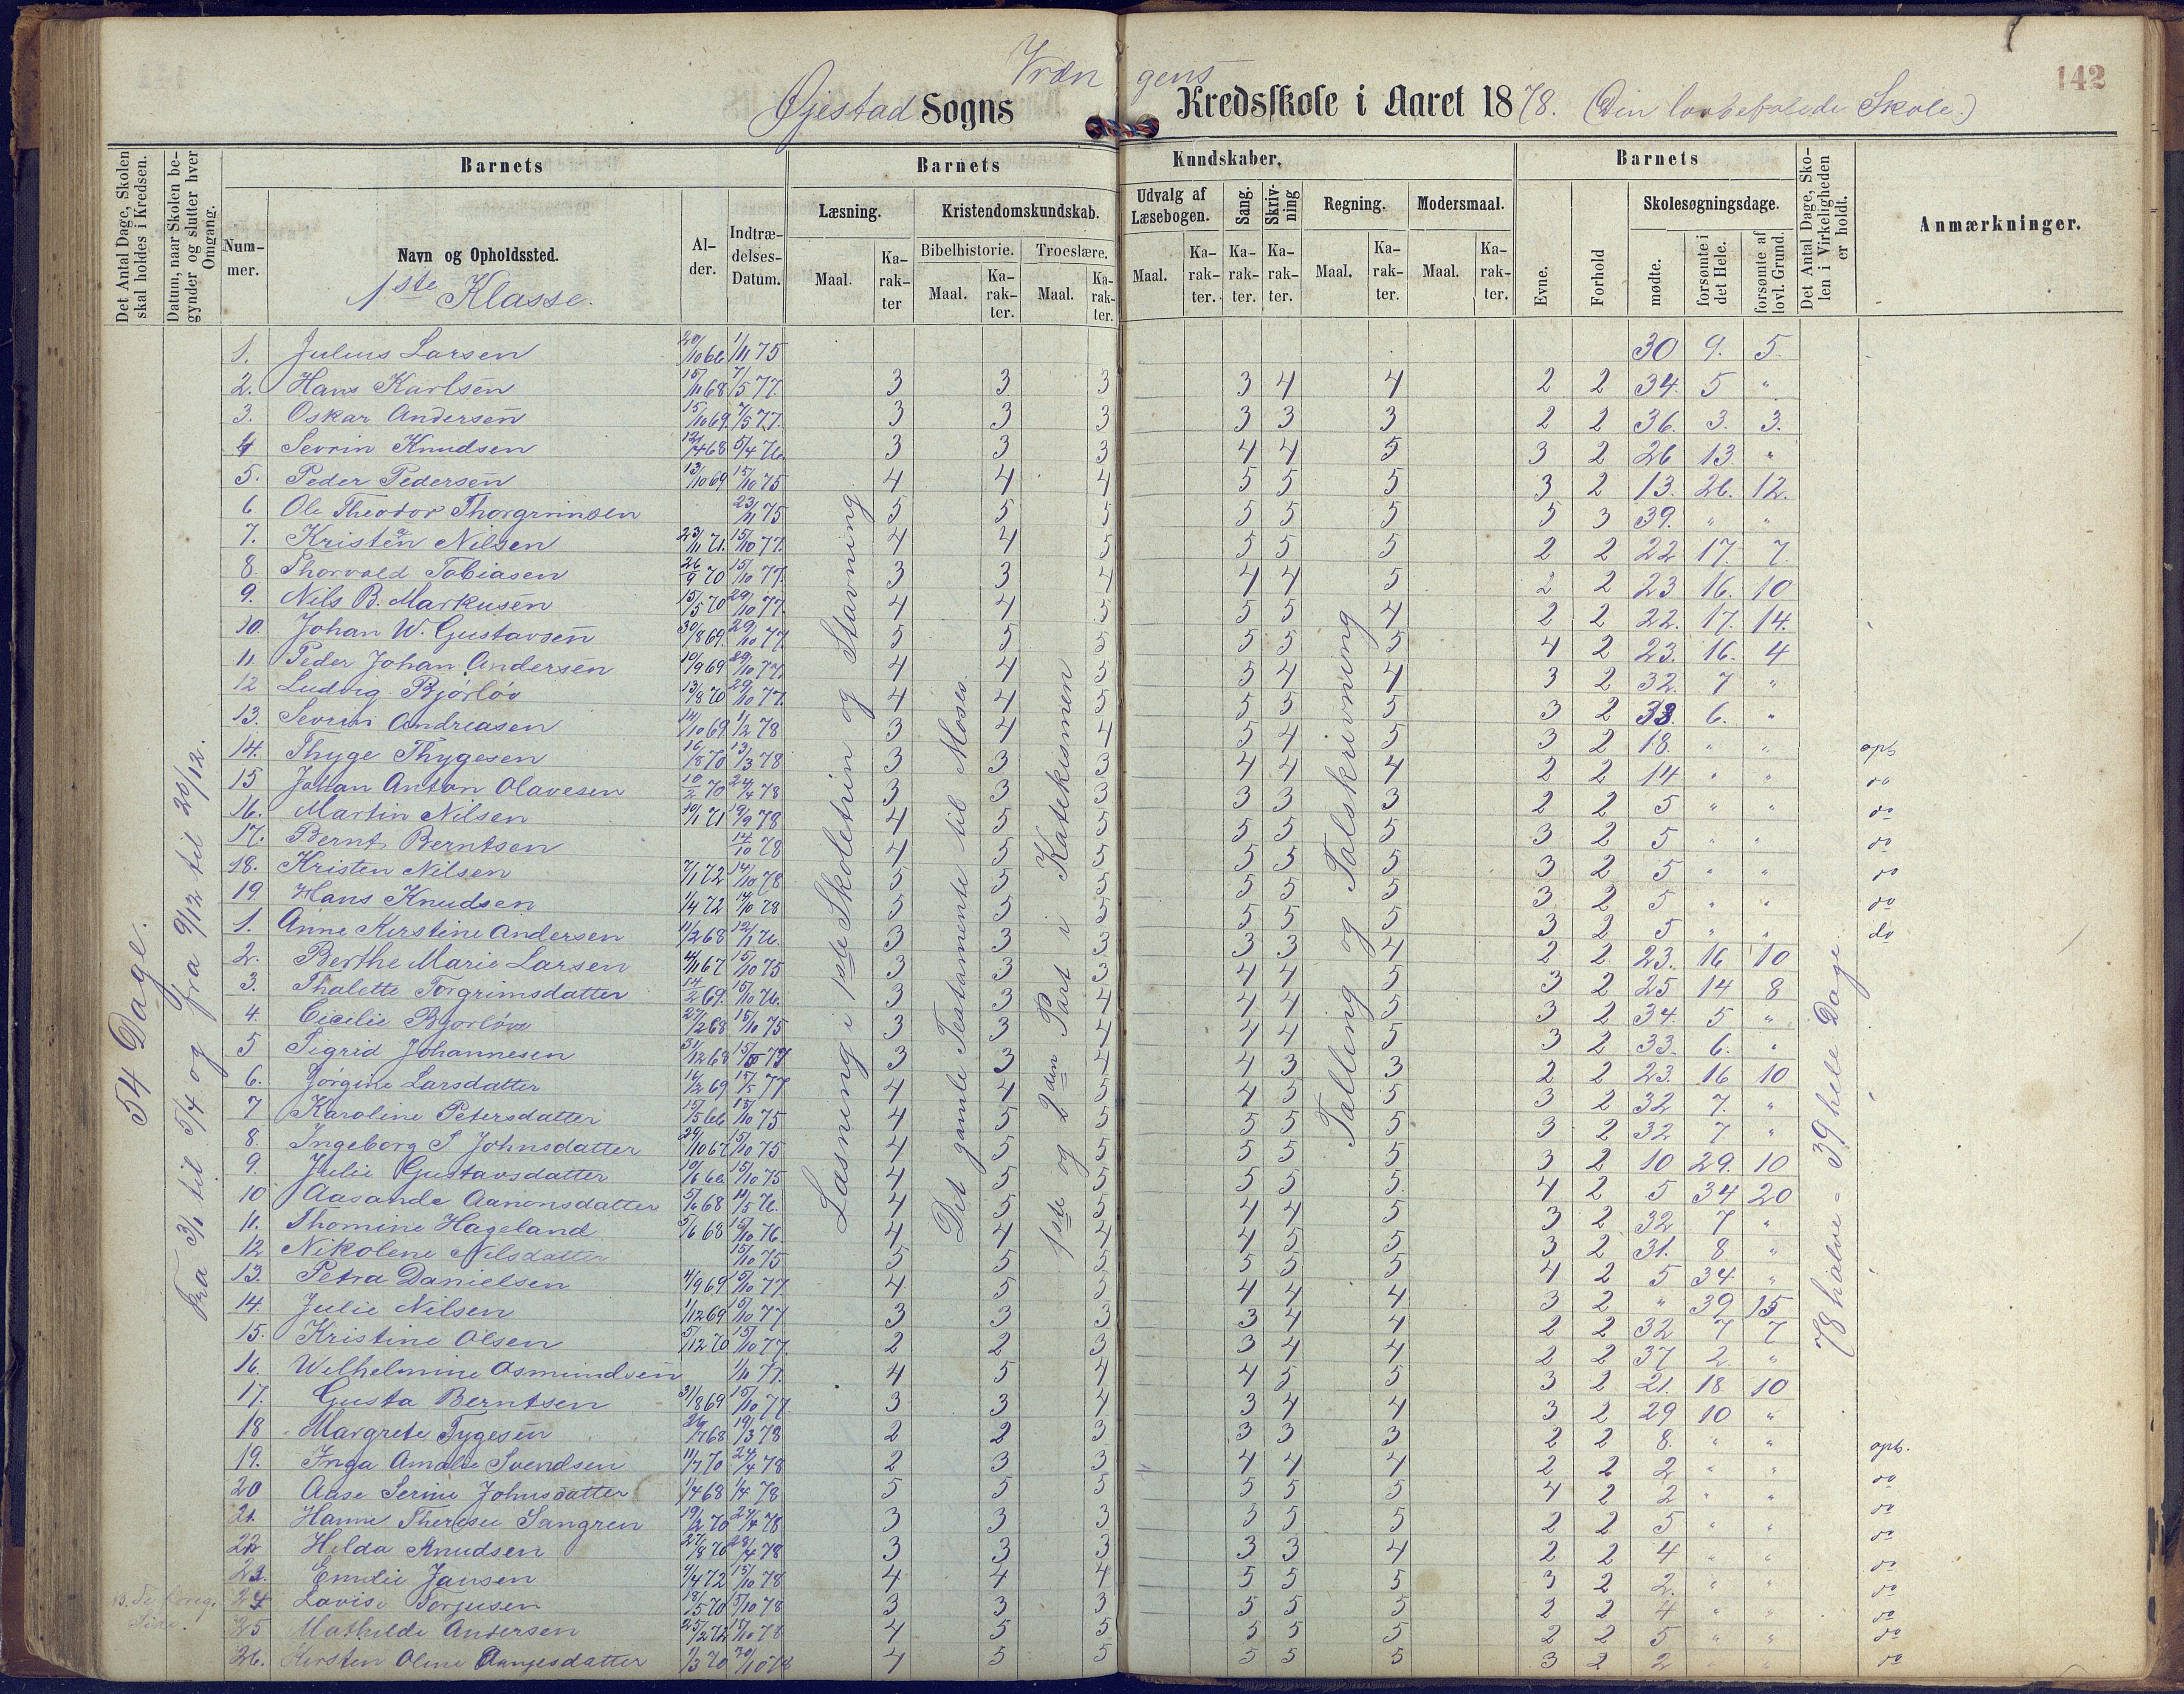 142
Vrængens
Øjestad Sogns Kredsskole i Aaret 1878. (Din lovbefalede Skole.)
Det Antal Dage, Skolen skal holdes i Kredsen.
Datum, naar Skolen begynder og slutter hver Omgang.
Barnets
Nummer.
Navn og Opholdssted.
1ste Klasse.
Alder.
Indtrædelses-Datum.
Barnets Kundskaber.
Læsning.
Maal. Karakter
Kristendomskundskab.
Bibelhistorie. Troeslære.
Maal. Karakter. Maal. Karakter.
Udvalg af Læsebogen.
Maal. Karakter.
Sang. Karakter.
Skrivning Karakter.
Regning.
Maal. Karakter.
Modersmaal.
Maal. Karakter.
Barnets
Evne. Forhold
Skolesøgningsdage.
mødte. forsømte i det Hele. forsømte af lovl. Grund.
Det Antal Dage, Skolen i Virkeligheden er holdt.
Anmærkninger.
54 Dage.
Fra 3/1 til 5/4 og fra 9/12 til 20/12.
Læsning i 1ste Skoletrin og Stavning
Det gamle Testamente til Moses.
1ste og 2den Part i Katekismen
Talling og Talskrivning
78 halve = 39 hele Dage
1. Julius Larsen 1/11 75 30 9. 5.
2. Hans Karlsen 15/11 68 7/5 77. 3 3 3 3 4 4 2 2 34. 5 "
3. Oskar Andersen 15/10 69. 7/5 77. 3 3 3 3 3 3 2 2 36. 3. 3.
4 Sevrin Knudsen 12/4 68 5/4 76. 3 3 3 4 4 5 3 2 26 13. "
5. Peder Pedersen 13/10 69 15/10 75 4 4 4 5 5 5 3 2 13. 26. 12.
6 Ole Theodor Thorgrimsen 23/11 75 5 5 5 5 5 5 5 3 39. " "
7. Kristen Nilsen 23/11 71. 15/10 77. 4 4 5 5 5 5 2 2 22 17. 7.
8. Thorvald Tobiasen 26/9 70 15/10 77. 3 3 4 4 4 5 2 2 23 16. 10
9. Nils B. Markusen 15/5 70 29/10 77. 4 4 5 5 5 4 2 2 22. 17. 14.
10. Johan W. Gustavsen 30/8 69. 29/10 77. 5 5 5 5 5 5 4 2 23. 16. 4
11. Peder Johan Andersen 10/9 69 29/10 77. 4 4 5 5 4 4 3 2 32. 7 "
12 Ludvig Bjørløv 13/8 70 29/10 77. 4 4 5 5 5 5 3 2 33. 6. "
13. Sevrin Andreasen 14/10 69. 1/2 78 3 4 4 5 4 5 3 2 18. " "
14. Thyge Thygesen 16/8 70 13/3 78 3 3 3 4 4 4 2 2 14 " " do
15 Johan Anton Olavesen 10/2 70 24/4 78 3 3 3 3 3 3 2 2 5 " " do
16. Martin Nilsen 10/1 71 19/9 78 4 5 5 5 5 5 3 2 5 " " do
17. Bernt Berntsen 14/10 78 4 5 5 5 5 5 3 2 5 " " do
18. Kristen Nilsen 7/1 72 14/10 78 5 5 5 5 5 5 3 2 5 " " do
19 Hans Knudsen 1/4 72 14/10 78 5 5 5 5 5 5 3 2 5 " " do
1. Anne Kirstine Andersen 11/2 68 12/1 76. 3 3 3 3 3 4 2 2 23. 16 10
2. Berthe Marie Larsen 4/11 67 15/10 75 3 3 3 4 4 5 3 2 25 14 8
3. Thalette Torgrimsdatter 14/2 69. 15/10 76. 3 3 4 4 4 5 3 2 34. 5 "
4. Cicilie Bjorløv 27/2 68 15/10 75 3 3 4 4 4 5 3 2 33. 6. "
5 Sigrid Johannesen 31/12 68 3 3 4 4 3 3 2 2 23. 16 10
6. Jørgine Larsdatter 16/2 69 4 4 5 4 5 5 3 2 32 7. "
7 Karoline Petersdatter 15/5 66 15/10 75 4 5 5 5 5 5 3 2 32 7. "
8. Ingeborg S Johnsdatter 29/10 67 15/10 75 4 5 5 5 5 5 3 2 10 29. 10
9. Julie Gustavsdatter 10/6 66 15/10 75 4 5 5 5 5 5. 4 2 5 34 20
10 Aasande Aanonsdatter 5/6 68 11/5 76. 4 5 5 4 4 5 3 2 32 7 "
11. Thomine Hageland 5/6 68 15/10 76. 4 4 4 4 5 5 3 2 31. 8 "
12 Nikolene Nilsdatter 15/10 75 5 5 5 5 5 5 4 2 5 34 "
13. Petra Danielsen 4/9 69 15/10 77 4 5 5 4 4 4 3 2 " 39 15
14. Julie Nilsen 1/12 69 15/10 77 3 3 3 3 4 4 2 2 32 7 7
15. Kristine Olsen 5/12 70 15/10 77. 2 2 3 3 4 4 2 2 37 2. "
16. Wilhelmine Asmundsen 1/11 77. 4 5 4 4 5 5 3 2 21. 18 10
17. Gusta Berntsen 31/8 69 15/10 77. 3 3 4 3 4 4 3 2 29 10 "
18 Margrete Tygesen 26/7 68 19/3 78 2 2 3 3 3 3 2 2 8. " "
19. Inga Amalie Svendsen 11/7 70 24/4 78 2 3 3 4 4 4 2 2 2 " " do
20 Aase Serine Johnsdatter 1/4 68 1/4 78 5 5 5 5 5 5 4 2 2 " " do
21. Hanne Therese Sangren 19/2 70 24/4 78 3 3 3 3 5 5 2 2 5 " " do
22 Hilda Knudsen 27/8 70 23/4 78 3 3 3 3 3 4 2 2 4 " " do
23. Emilie Jansen 9/4 72 15/10 78 4 4 4 5 5 5 3 2 2. " " do
24 Lovise Torjusen 18/5 70 15/10 78 3 3 3 5 5 5 2 2 4 " " do
25 Mathilde Andersen 25/12 72 15/10 78 4 5 5 5 5 5 2 2 5 " " do
26. Kirsten Oline Aanjesdatter 1/3 70 4 5 5 5 5 5 3 2 2 " " do